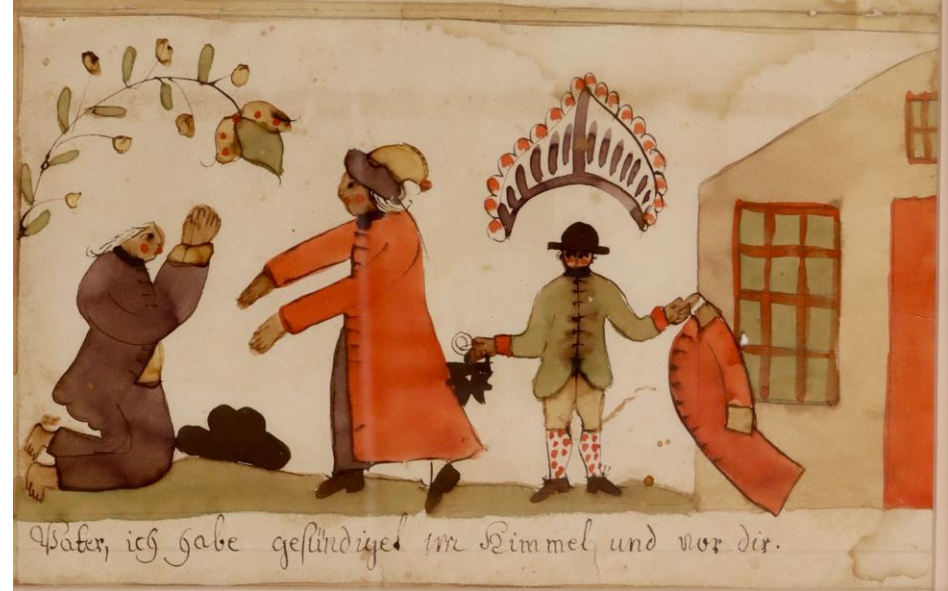 Vater, ich habe gesündiget im Himmel und vor dir.